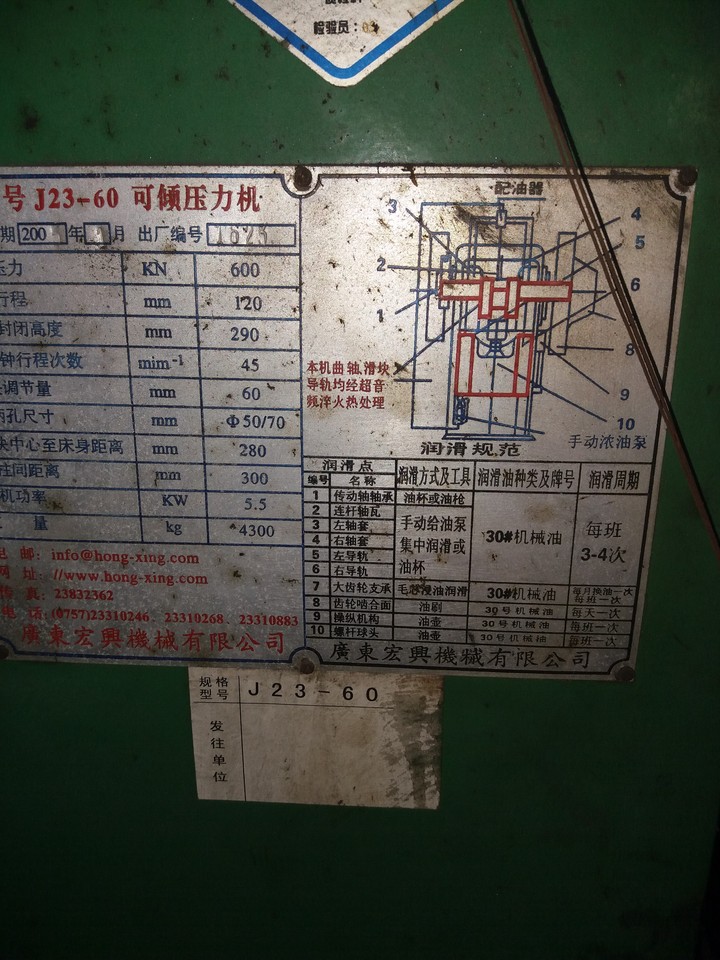 检验员：
号 J23-60 可倾压力机
期 200 年 月 出厂编号
压力 KN 600
行程 mm 120
封闭高度 mm 290
钟行程次数 mim⁻¹ 45
调节量 mm 60
柄孔尺寸 mm Φ50/70
块中心至床身距离 mm 280
柱间距离 mm 300
机功率 KW 5.5
量 kg 4300
电 邮：info@hong-xing.com
网 址：//www.hong-xing.com
传 真：23832362
电 话：(0757)23310246、23310268、23310883
廣東宏興機械有限公司
配油器
3
4
5
2
6
1
8
9
10
本机曲轴.滑块
导轨均经超音
频淬火热处理
手动浓油泵
润滑规范
润滑点 润滑方式及工具 润滑油种类及牌号 润滑周期
编号 名称
1 传动轴轴承 油杯或油枪
2 连杆轴瓦 手动给油泵集中润滑或油杯 30#机械油 每班3-4次
3 左轴套
4 右轴套
5 左导轨
6 右导轨
7 大齿轮支承 毛芯浸油润滑 30#机械油 每月换油一次 每班一次
8 齿轮啮合面 油刷 30号机械油 每天一次
9 操纵机构 油壶 30号机械油 每班一次
10 螺杆球头 油壶 30号机械油 每班一次
廣東宏興機械有限公司
规格型号 J23-60
发往单位